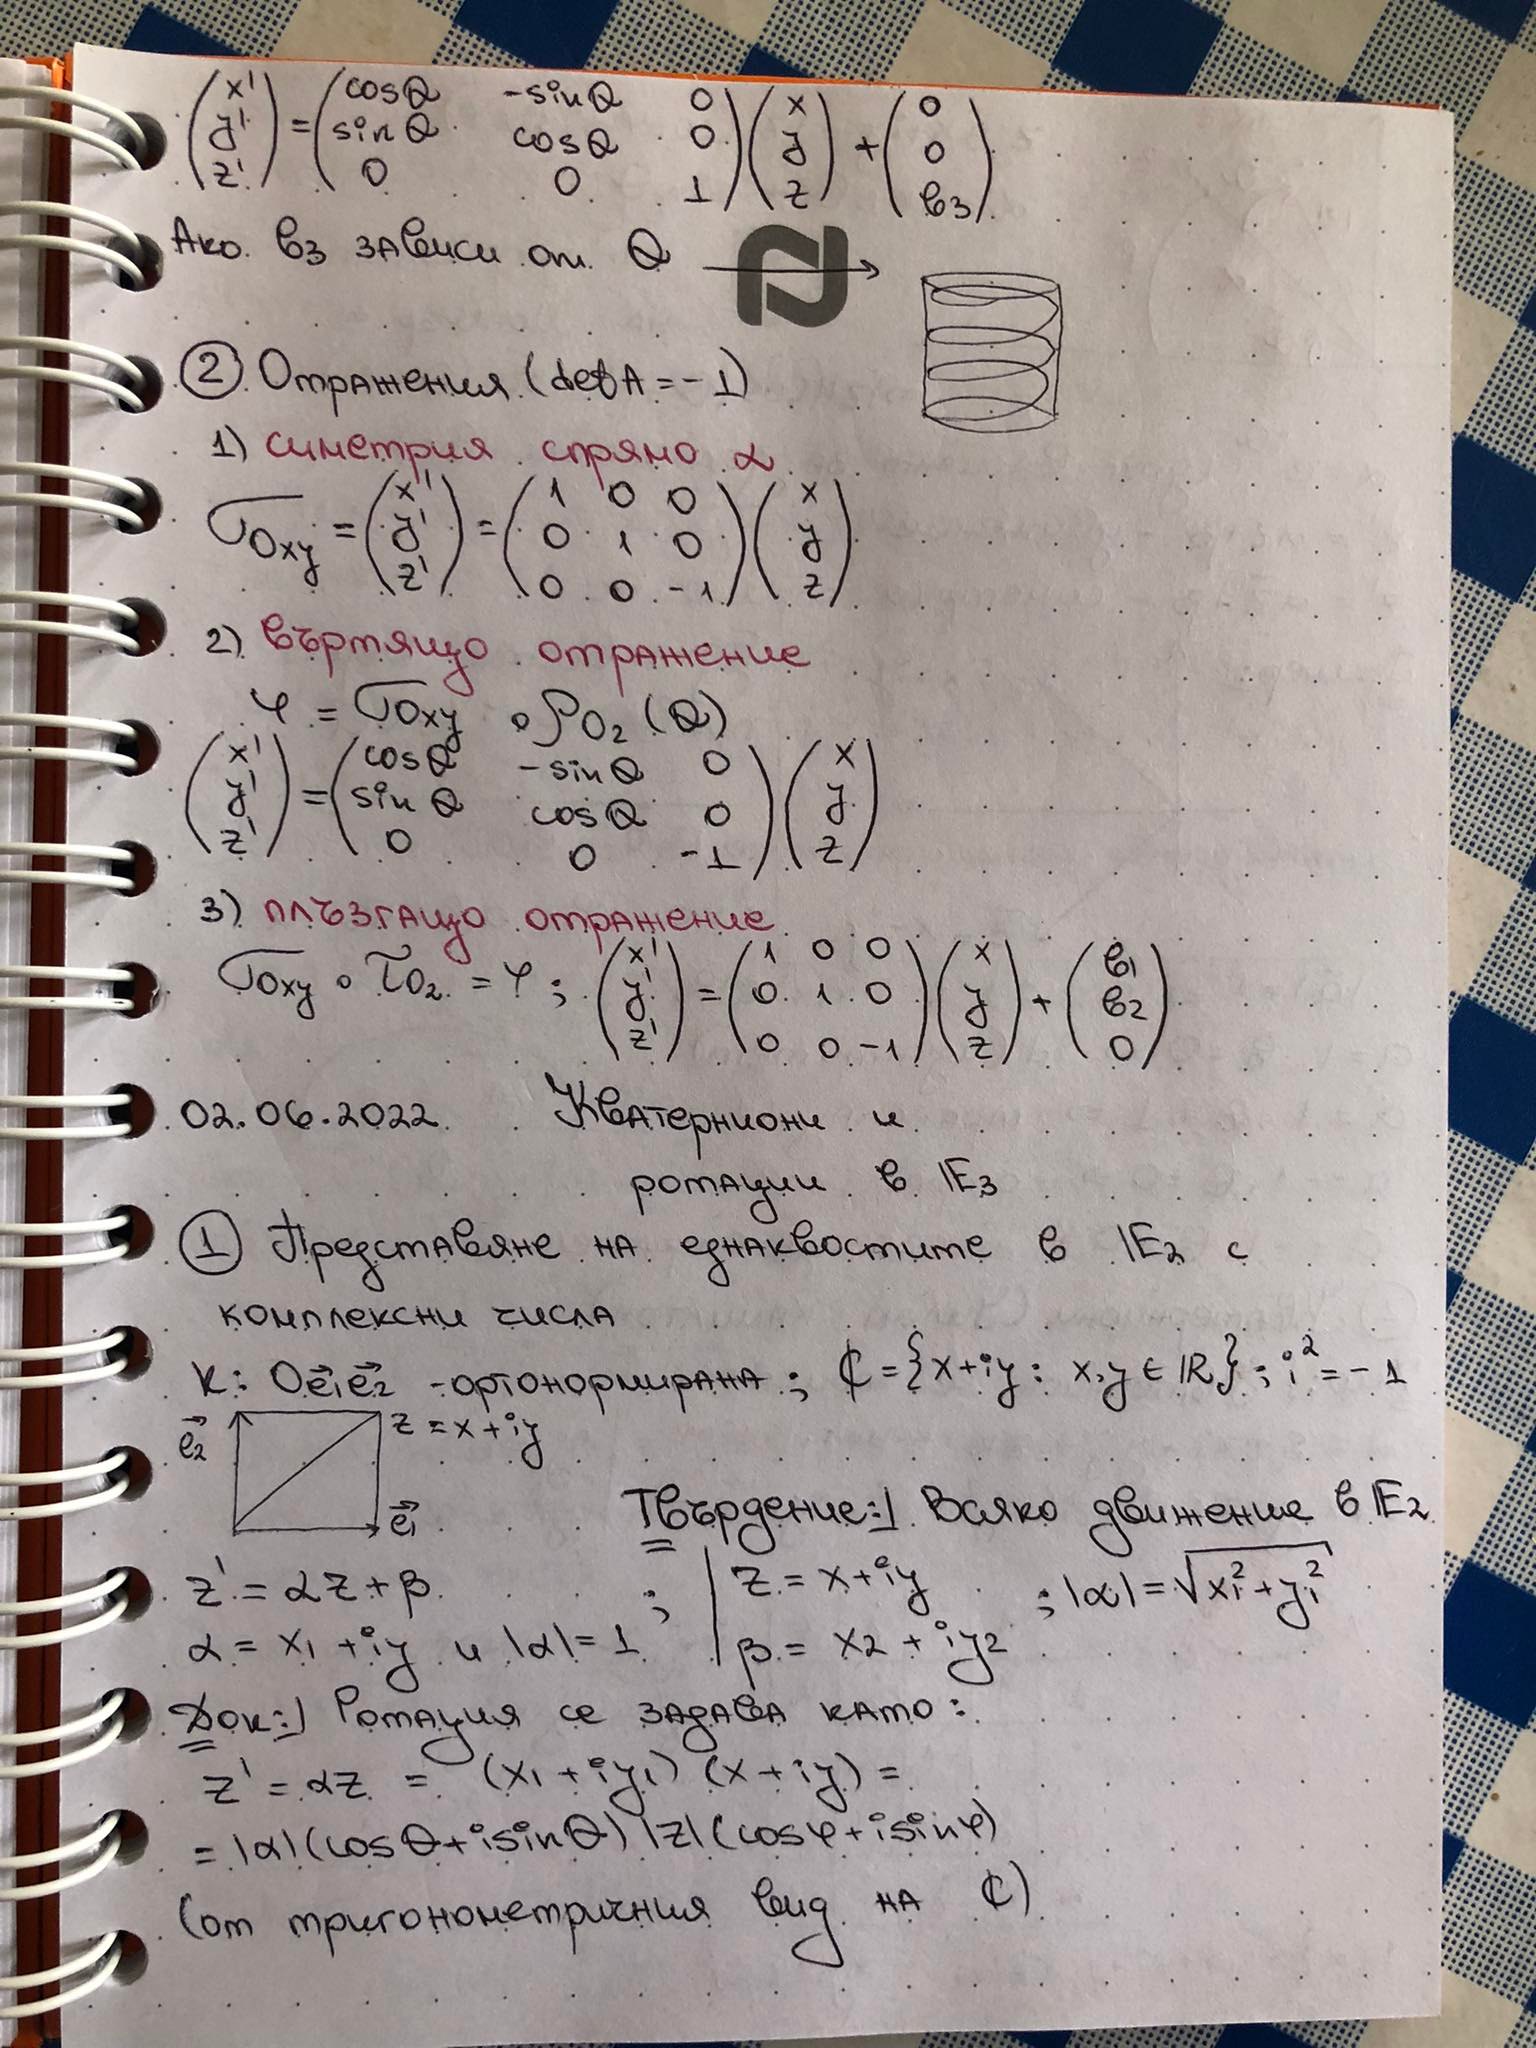 (x' y' z') = (cosθ -sinθ 0; sinθ cosθ 0; 0 0 1)(x y z) + (0 0 в3)
Ако в3 зависи от θ →
② Отражения (detA = -1)
1) симетрия спрямо α
σOxy = (x' y' z') = (1 0 0; 0 1 0; 0 0 -1)(x y z)
2) въртящо отражение
φ = σOxy ∘ ρOz (θ)
(x' y' z') = (cosθ -sinθ 0; sinθ cosθ 0; 0 0 -1)(x y z)
3) плъзгащо отражение
σOxy ∘ τOz = φ ; (x' y' z') = (1 0 0; 0 1 0; 0 0 -1)(x y z) + (в1 в2 0)
02.06.2022 Кватерниони и
ротации в E3
① Представяне на еднаквостите в E2 с
комплексни числа
K: Oe⃗1e⃗2 - ортонормирана ; ℂ = {x+iy : x,y ∈ ℝ} ; i² = -1
e⃗2 z = x+iy
e⃗1
Твърдение:| Всяко движение в E2
z' = αz + β ; | z = x+iy ; |α| = √(x1² + y1²)
α = x1 + iy и |α| = 1 | β = x2 + iy2
Док:| Ротация се задава като:
z' = αz = (x1 + iy1) (x + iy) =
= |α|(cosθ + isinθ) |z|(cosφ + isinφ)
(от тригонометричния вид на ℂ)